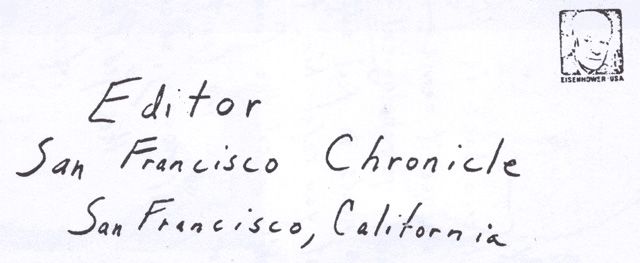 EISENHOWER·USA
Editor
San Francisco Chronicle
San Francisco, California